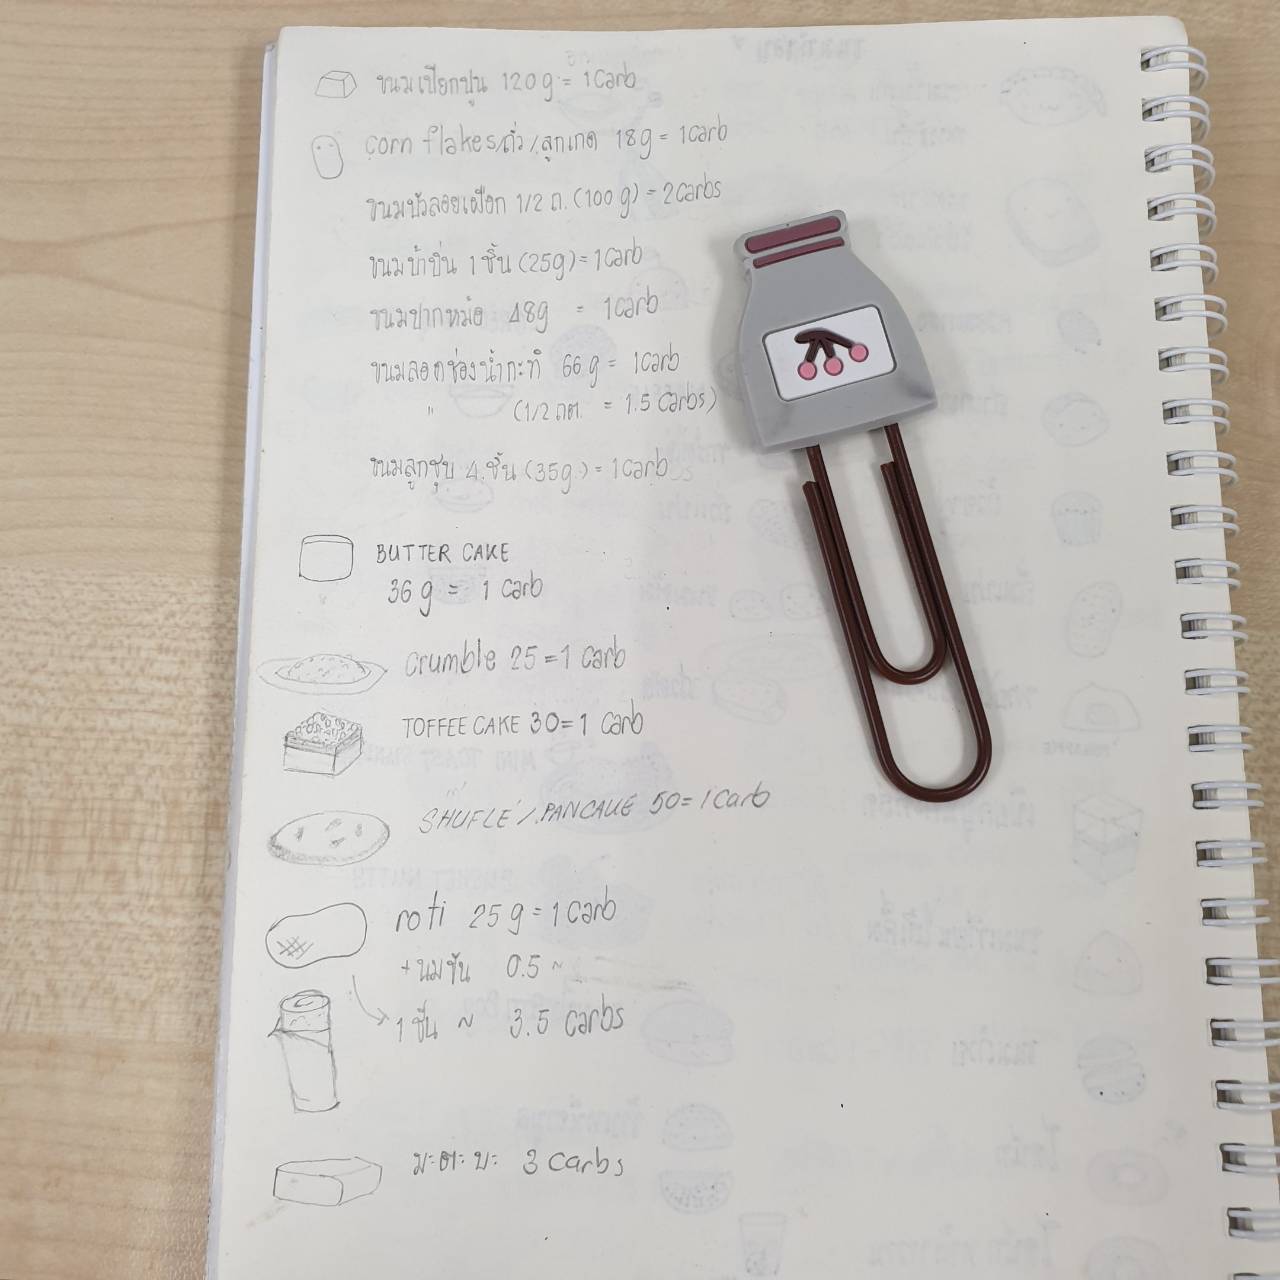 ขนมเปียกปูน 120 g = 1 Carb
corn flakes/ถั่ว/ลูกเกด 18g = 1carb
ขนมบัวลอยเผือก 1/2 ถ. (100 g) = 2carbs
ขนมบ้าบิ่น 1 ชิ้น (25g) = 1carb
ขนมปากหม้อ 48g = 1carb
ขนมลอดช่องน้ำกะทิ 66 g = 1carb
" (1/2 ถต. = 1.5 Carbs)
ขนมลูกชุบ 4 ชิ้น (35g.) = 1carb
BUTTER CAKE
36 g = 1 carb
crumble 25 = 1 carb
TOFFEE CAKE 30 = 1 carb
SHUFLE / PANCAKE 50 = 1 carb
roti 25 g = 1 carb
+ นมข้น 0.5 ~
1 ชิ้น ~ 3.5 carbs
มะตะบะ 3 carbs